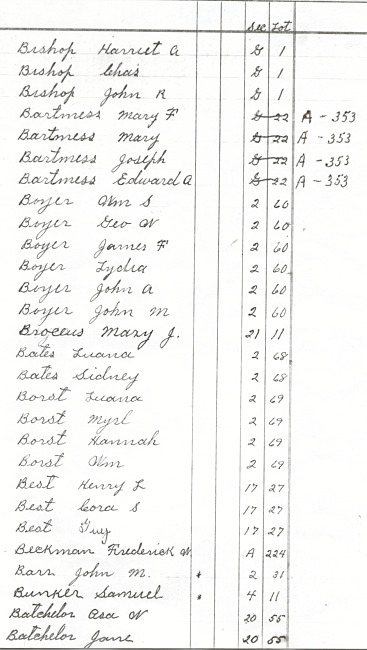 Sec Lot
Bishop Harriet A G 1
Bishop Chas G 1
Bishop John R G 1
Bartmess Mary F G 22 A - 353
Bartmess Mary G 22 A - 353
Bartmess Joseph G 22 A - 353
Bartmess Edward A G 22 A - 353
Boyer Wm S 2 60
Boyer Geo W 2 60
Boyer James F 2 60
Boyer Lydia 2 60
Boyer John A 2 60
Boyer John M 2 60
Broccus Mary J. 21 11
Bates Luana 2 68
Bates Sidney 2 68
Borst Luana 2 69
Borst Myrl 2 69
Borst Hannah 2 69
Borst Wm 2 69
Best Henry L 17 27
Best Cora S 17 27
Best Guy 17 27
Beckman Frederick W. A 224
Barr John M. * 2 31
Bunker Samuel * 4 11
Batchelor Asa W 20 55
Batchelor Jane 20 55